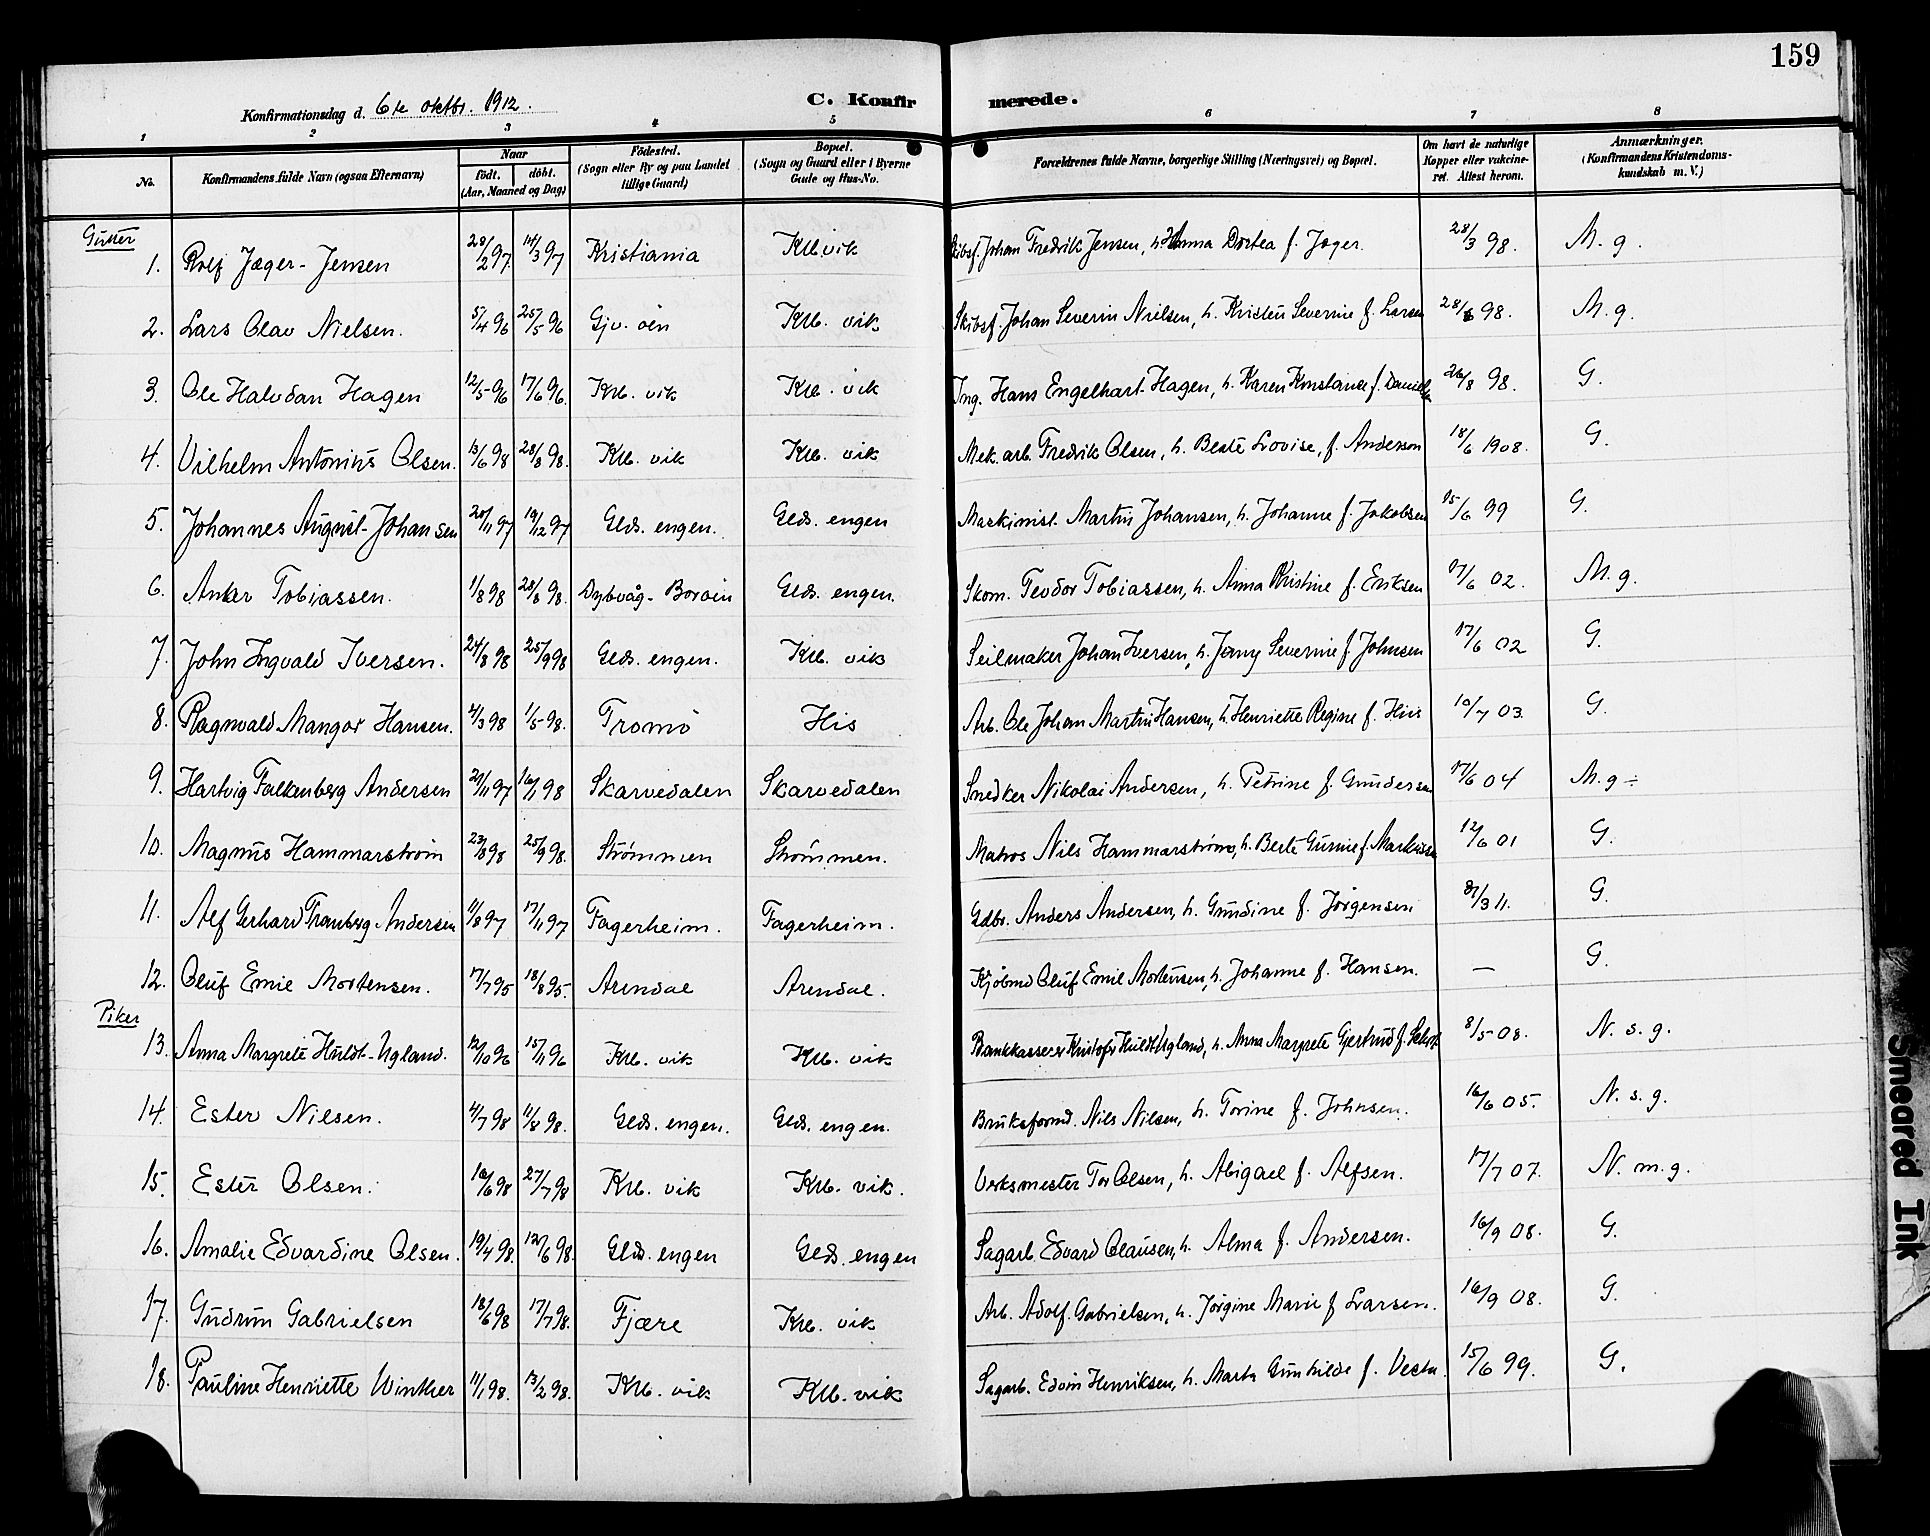 159
Konfirmationsdag d. 6te oktbr. 1912.
C. Konfirmerede.
1 2 3 4 5 6 7 8
No. Konfirmandens fulde Navn (ogsaa Efternavn) Naar født. døbt. (Aar, Maaned og Dag) Fødested. (Sogn eller By og paa Landet tillige Gaard) Bopæl. (Sogn og Gaard eller i Byerne Gade og Hus-No. Forældrenes fulde Navne, borgerlige Stilling (Næringsvei) og Bopæl. Om havt de naturlige Kopper eller vakcineret. Attest herom. Anmærkninger. (Konfirmandens Kristendomskundskab m. V.)
Gutter
1. Rolf Jæger-Jensen 28/2 97. 14/3 97 Kristiania Klb. vik Skibsf. Johan Fredrik Jensen, h. Anna Dortea f. Jæger. 28/3 98. M. g.
2. Lars Olav Nielsen. 5/4 96 25/5 96 Gjv. øen Klb. vik Skibsf. Johan Severin Nielsen, h. Kristen Severine f. Larsen 28/ 98. M. g.
3. Ole Halvdan Hagen 12/5-96 17/6 96. Klb. vik Klb. vik Ing. Hans Engelhart Hagen, h. Karen Konstance f. 26/8 98. G.
4. Vilhelm Antonius Olsen. 13/6 98 28/8 98. Klb. vik Klb. vik Mek. arb. Fredrik Olsen, h. Beate Lovise, f. Anderson 18/6 1908. G.
5. Johannes August Johansen 20/11 97 19/12 97 Glds. engen. Glds. engen Maskinist Martin Johansen, h. Johanne f. Jakobsen 15/6 99 G.
6. Anker Tobiassen. 1/8 98 28/8 98. Dybvåg-Borøin Glds. engen. Skom. Teodor Tobiassen, h. Anna Kristine f. Eriksen 17/6 02. M. g.
7. John Ingvald Iversen. 24/8 98 25/9 98 Glds. engen. Klb. vik Seilmaker Johan Iversen, h. Jenny Severine f. Johnsen 17/6 02 G.
8. Ragnvald Mangor Hansen. 4/3 98 1/5-98. Tromø His Arb. Ole Johan Martin Hansen, h. Henriette Regine f. Hiis 10/7 03. G.
9. Hartvig Falkenberg Andersen 29/11 97 16/1 98 Skarvedalen Skarvedalen Snedker Nikolai Andersen, h. Petrine f. Gundersen 17/6 04 M. g ÷
10. Magnus Hammarstrøm 23/8 98 25/9 98. Strømmen Strømmen. Matros Nils Hammarstrøm, h. Berte Gurine f. 12/6 01 G.
11. Alf Gerhard Tranberg Andersen 11/8 97 17/11 97 Fagerheim. Fagerheim. Gdbr. Anders Andersen, h. Gundine f. Jørgensen 31/3 11. G.
12. Oluf Emil Mortensen. 17/7 95 18/8 95. Arendal Arendal. Kjøbmd Oluf Emil Mortensen, h. Johanne f. Hansen. — G.
Piker
13. Anna Margrete Huldt-Ugland. 12/10 96 15/11 96 Klb. vik Klb. vik Bankkasserer Kristofer Huldt Ugland, h. Anna Margrete Gjertrud f. 8/5-08. N. s. g.
14. Ester Nilsen. 4/7 98 11/8 98. Glds. engen. Glds. engen. Bruksformd. Nils Nilsen, h. Torine f. Johnsen. 16/6 05. N. s. g.
15. Ester Olsen. 16/6 98 27/7 98 Klb. vik Klb. vik. Verksmester Tor Olsen, h. Abigael f. Alfsen. 17/7 07. N. m. g.
16. Amalie Edvardine Olsen. 19/4 98. 12/6 98. Glds. engen Glds. engen Sagarb. Edvard Clausen, h. Alma f. Andersen. 16/9 08. G.
17. Gudrun Gabrielsen 18/6 98 17/7 98. Fjære Klb. vik Arb. Adolf Gabrielsen, h. Jørgine Marie f. Larsen. 16/9 08. G.
18. Pauline Henriette Winther 11/1 98. 13/2 98. Klb. vik Klb. vik Sagarb. Edvin Henriksen, h. Marta Gunhilde f. 15/6 99. G.
Smeared Ink